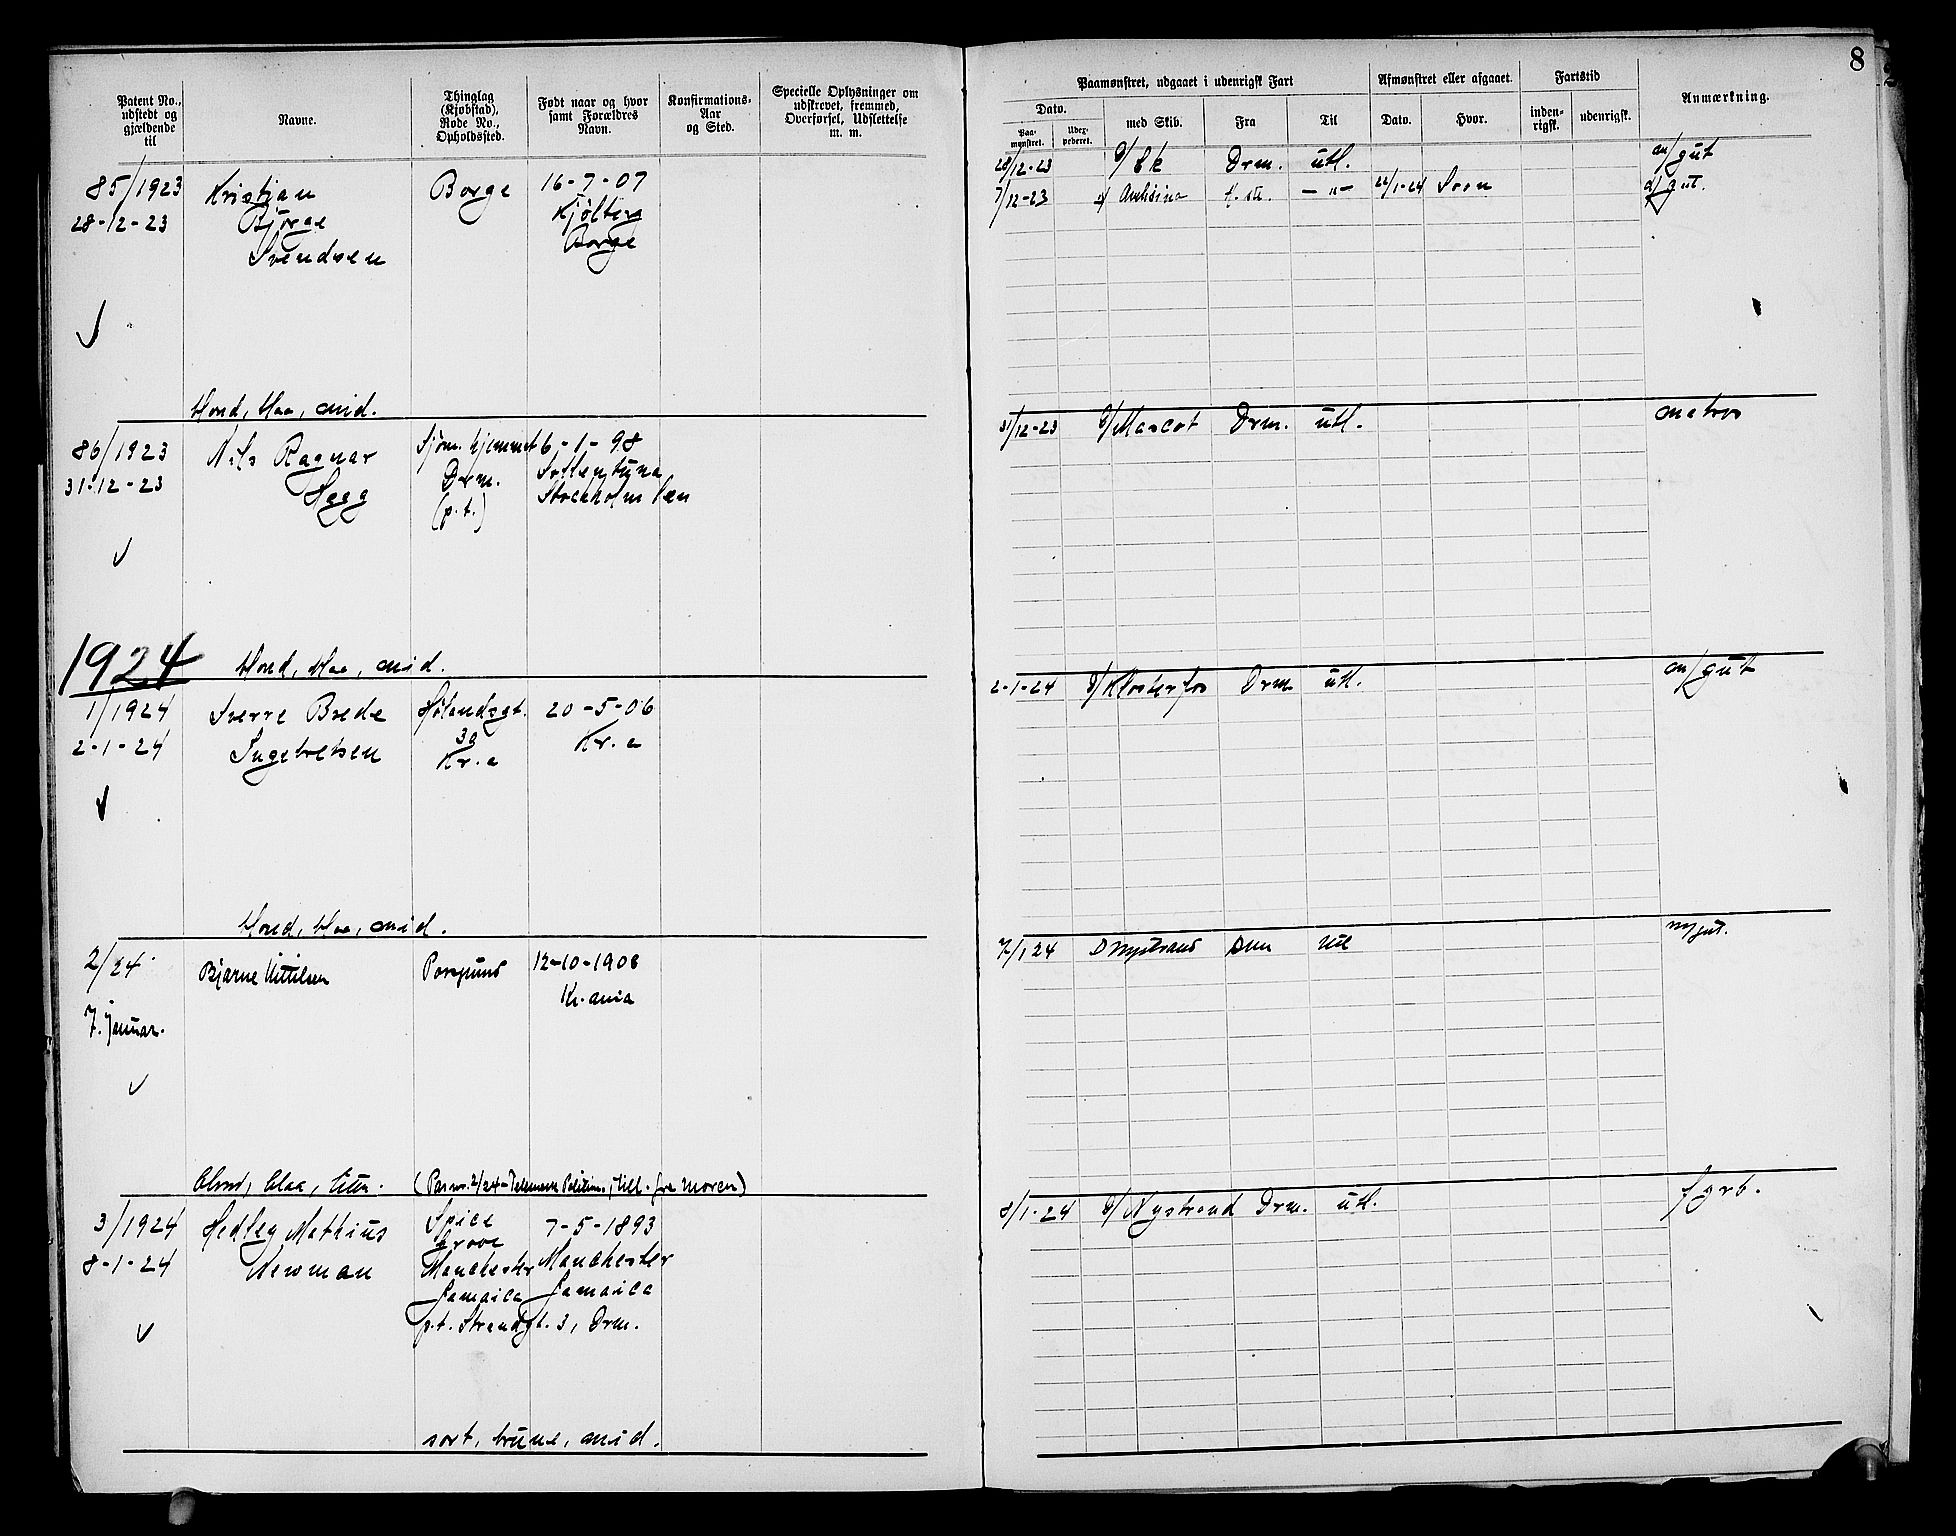 8
Patent No., udstedt og gjældende til
Navne.
Thinglag (Kjøbstad), Rode No., Opholdssted.
Født naar og hvor samt Forældres Navn.
Konfirmations-Aar og Sted.
Specielle Oplysninger om udskrevet, fremmed, Overførsel, Udslettelse m. m.
Paamønstret, udgaaet i udenrigsk Fart
Afmønstret eller afgaaet.
Fartstid
Anmærkning.
Dato.
Paa-mønstret.
Udex-pederet.
med Skib.
Fra
Til
Dato.
Hvor.
inden-rigsk.
udenrigsk.
85/1923
28-12-23
Kristian
Bjørge
Svendsen
Borge
16-7-07
Kjølberg
Borge
28/12-23 D/ Ek Drm. utl. m/gut
7/12-23 22/1-24 d/gut.
blond, blaa, mid.
86/1923
31-12-23
Nils Ragnar
Hägg
Sjøm. hjemmet
Drm.
(p.t.)
6-1-98
Sollentuna
Stockholm län
31/12-23 D/Mascot Drm. utl. matros
1924
blond, blaa, mid.
1/1924
2-1-24
Sverre Brede
Ingebretsen
Hølandsgt.
Kr.a
20-5-06
Kr.a
2-1-24 D/Klosterfos Drm utl. m/gut
blond, blaa, mid.
2/24
7. januar.
Bjarne Kittilsen
Porsgrund
12-10-1908
Kr.ania
7/1 24 D Nystrand Drm utl
blond, blaa, liten.
(Pas nr. 2/24 - Telemark Politim., till. fra moren)
3/1924
8-1-24
Hedley Mathius
Newman
Spice
Grove
Manchester
Jamaica
p.t. Strandgt. 3, Drm.
7-5-1893
Manchester
Jamaica
8/1-24 D/Nystrand Drm. utl. fyrb.
sort, brune, mid.